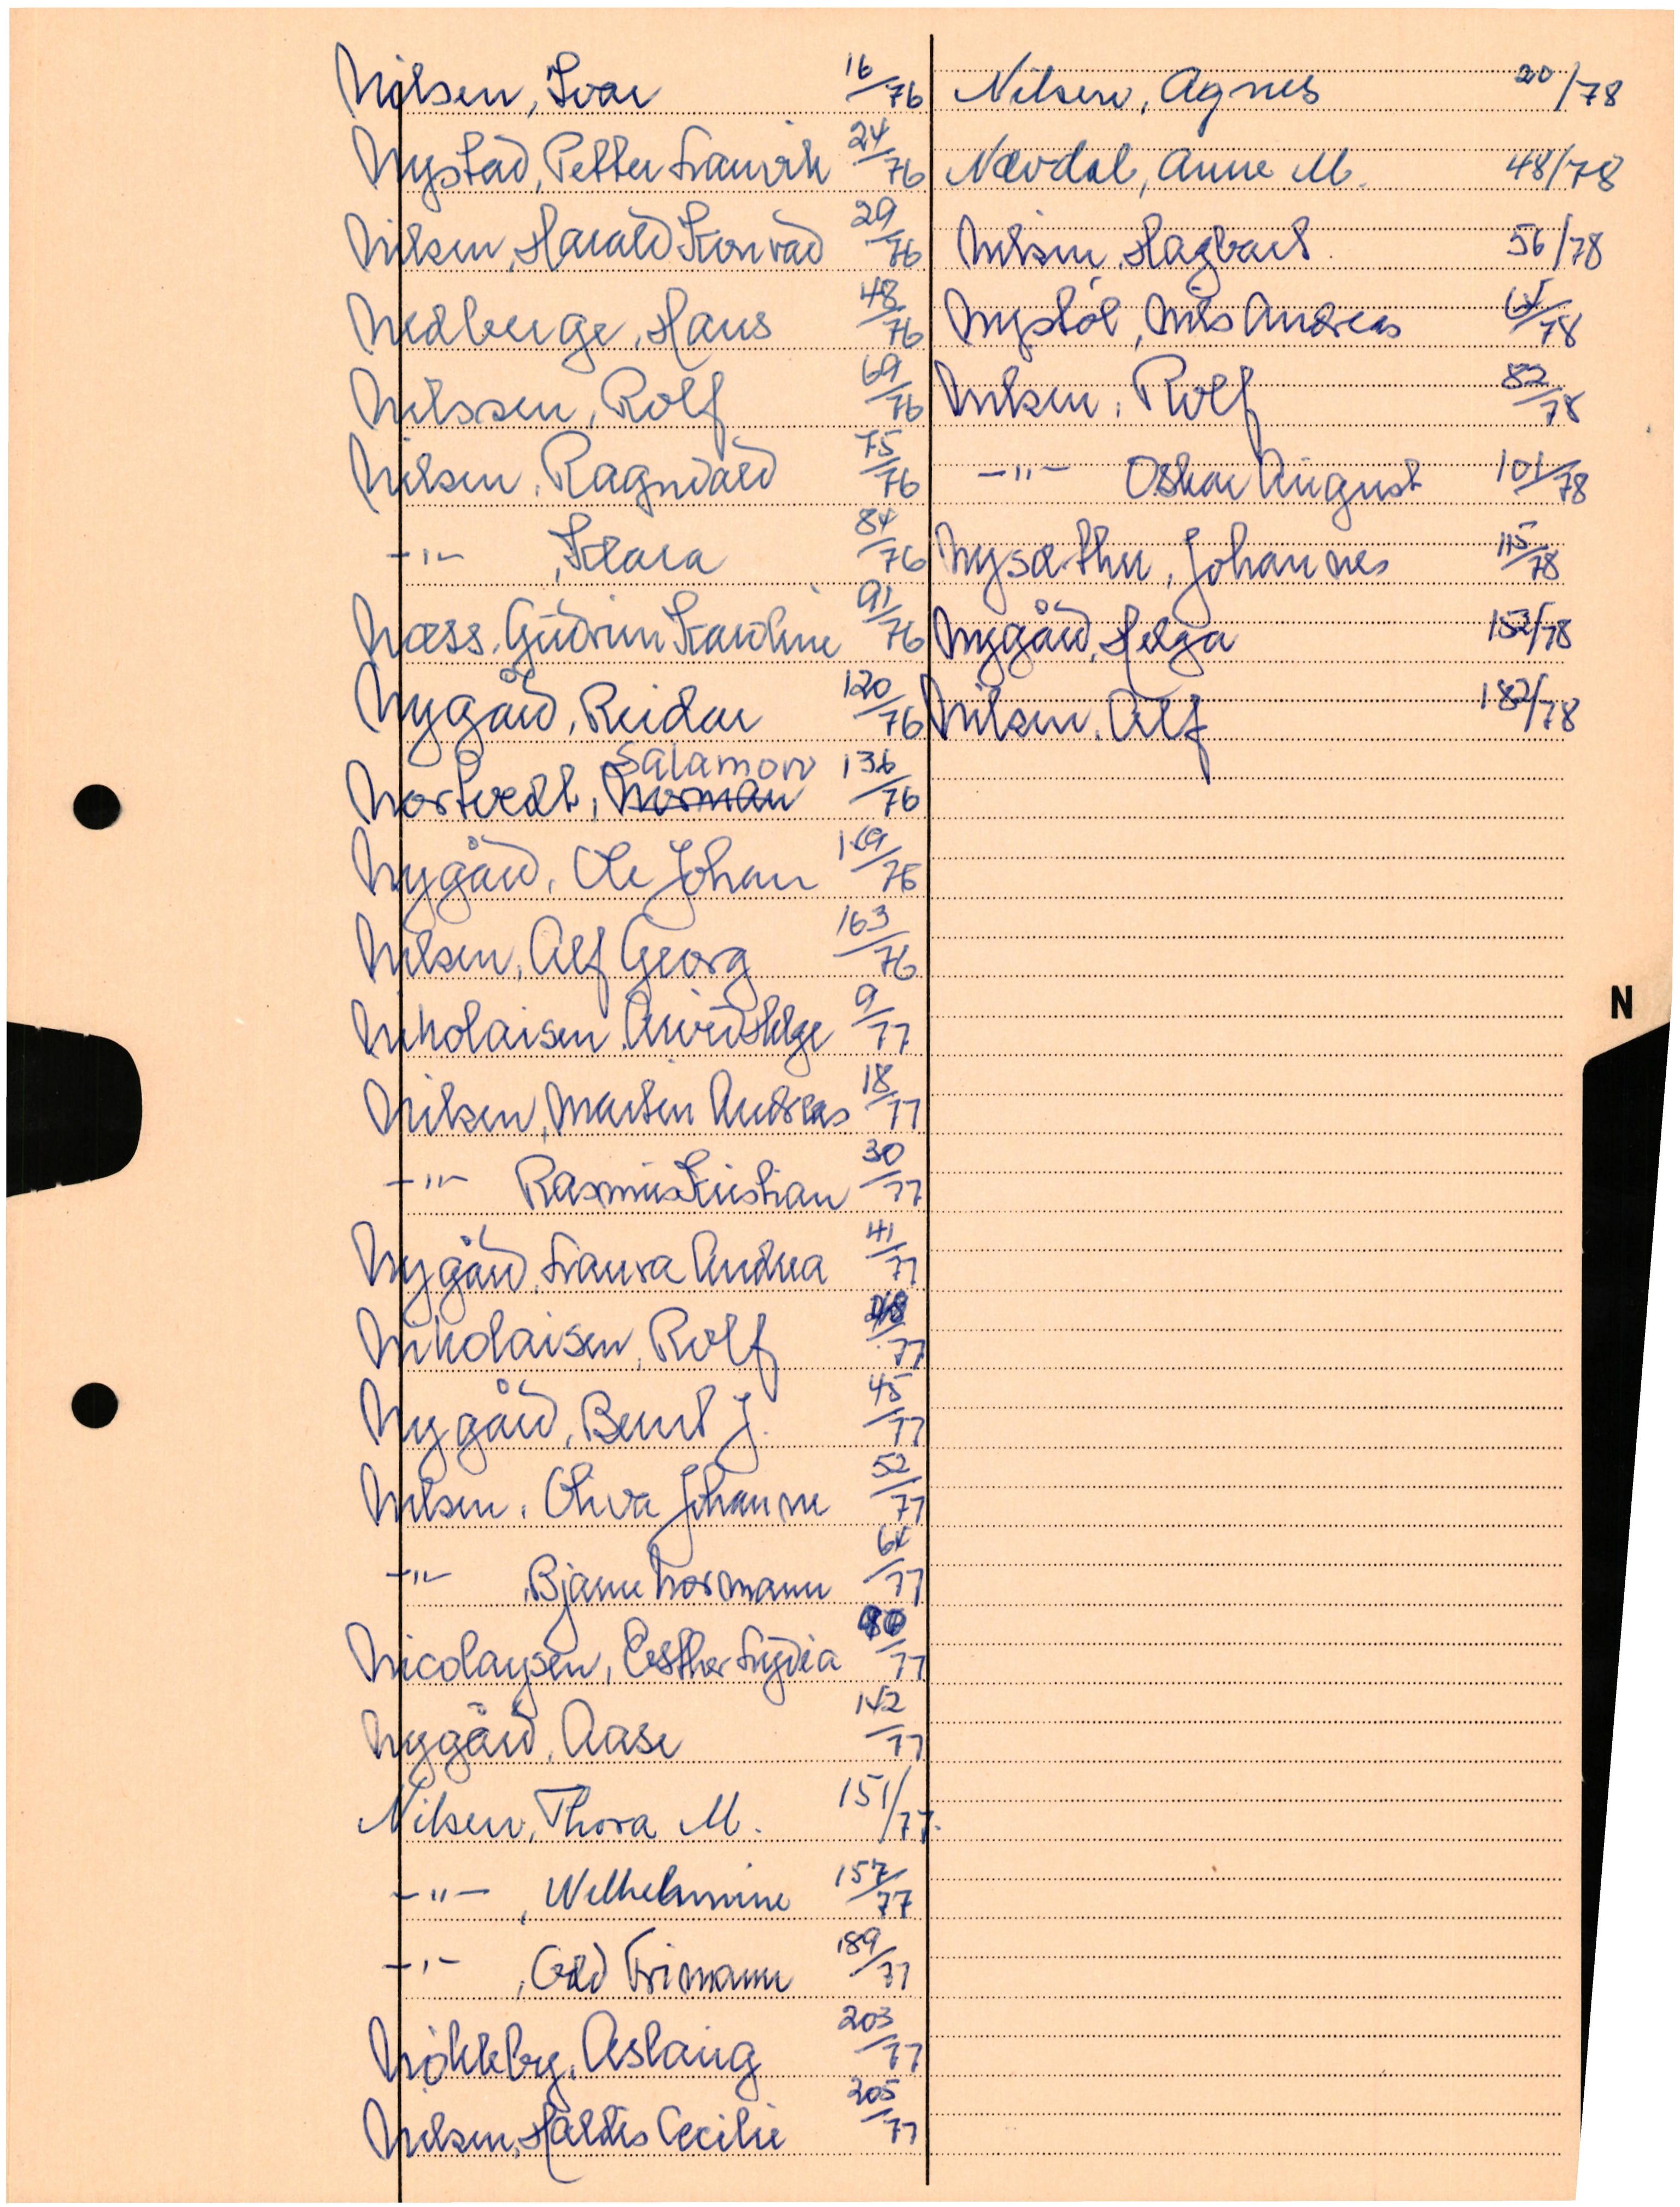 Nilsen, Ivar 16/76
Nystad, Petter Laurik 24/76
Nilsen, Harald Konrad 29/76
Nedberge, Hans 48/76
Nilssen, Rolf 69/76
Nilsen, Ragnvald 75/76
-"- , Klara 84/76
Næss, Gudrun Karoline 91/76
Nygård, Reidar 120/76
Salamon
Nortvedt, Norman 136/76
Nygård, Ole Johan /76
Nilsen, Alf Georg 163/76
Nikolaisen, Arvid Helge 9/77
Nilsen, Martin Andreas 18/77
-"- Rasmus Kristian 30/77
Nygård, Laura Andrea 41/77
Nikolaisen, Rolf /77
Nygård, Bernt J. 45/77
Nilsen, Oliva Johanne 52/77
-"- , Bjarne Normann 64/77
Nicolaysen, Esther Lydia /77
Nygård, Aase 142/77
Nilsen, Thora M. 151/77.
-"- , Wilhelmine 157/77
-"- , Odd Trimann 189/77
Nökkleby, Aslaug 203/77
Nilsen, Haldis Cecilie 205/77
Nilsen, Agnes 20/78
Nævdal, Anne M. 48/78
Nilsen, Hagbart 56/78
Nystøl, Nils Andreas /78
Nilsen, Rolf 82/78
-"- Oskar August 101/78
Nysæther, Johannes 115/78
Nygård, Helga 152/78
Nilsen, Alf 182/78
N